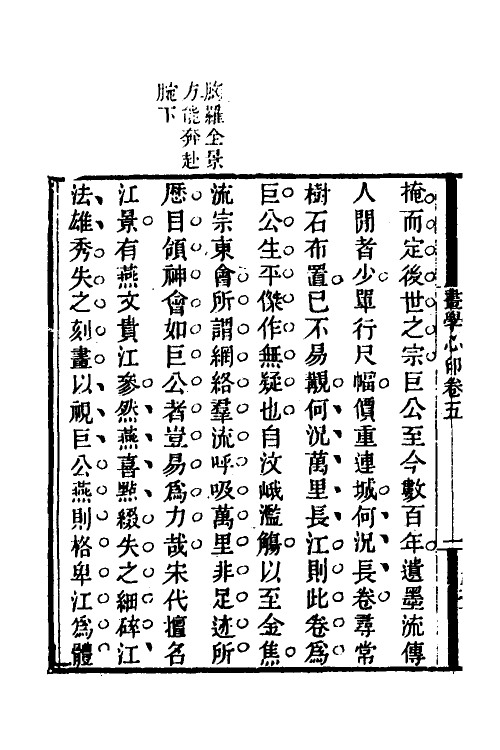 畫學心印卷五
掩而定後世之宗巨公至今數百年遺墨流傳
人閒者少單行尺幅價重連城何況長卷尋常
樹石布置已不易觀何況萬里長江則此卷為
巨公生平傑作無疑也自汶峨濫觴以至金焦
流宗東會所謂網絡羣流呼吸萬里非足迹所
歷目領神會如巨公者豈易為力哉宋代擅名
江景有燕文貴江參然燕喜點綴失之細碎江
法雄秀失之刻畫以視巨公燕則格卑江為體
胷羅全景
方能奔赴
腕下